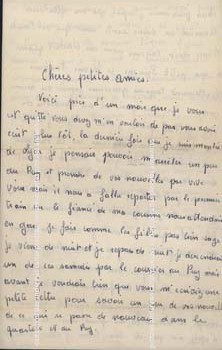 Chères petites amies.
Voici près d'un mois que je vous
ai quitté vous devez m'en vouloir de pas vous avoir
écrit plus tôt, la dernière fois que je suis
de je pensais pouvoir m'arrêter un peu
au Puy et prendre de vos nouvelles pas vive
voix mais il nous a fallu repartir par le premier
train le fiancé de ma cousine nous attendait
en gare je fais comme les filles pas bien sages
je viens de nuit et je repars de nuit je descendrai
un de ces samedis par le courrier au Puy mais
avant je voudrais bien que vous m'écriviez une
petite lettre pour savoir un peu de vos nouvelles
de ce qui se passe de nouveau dans le
quartier et au Puy.